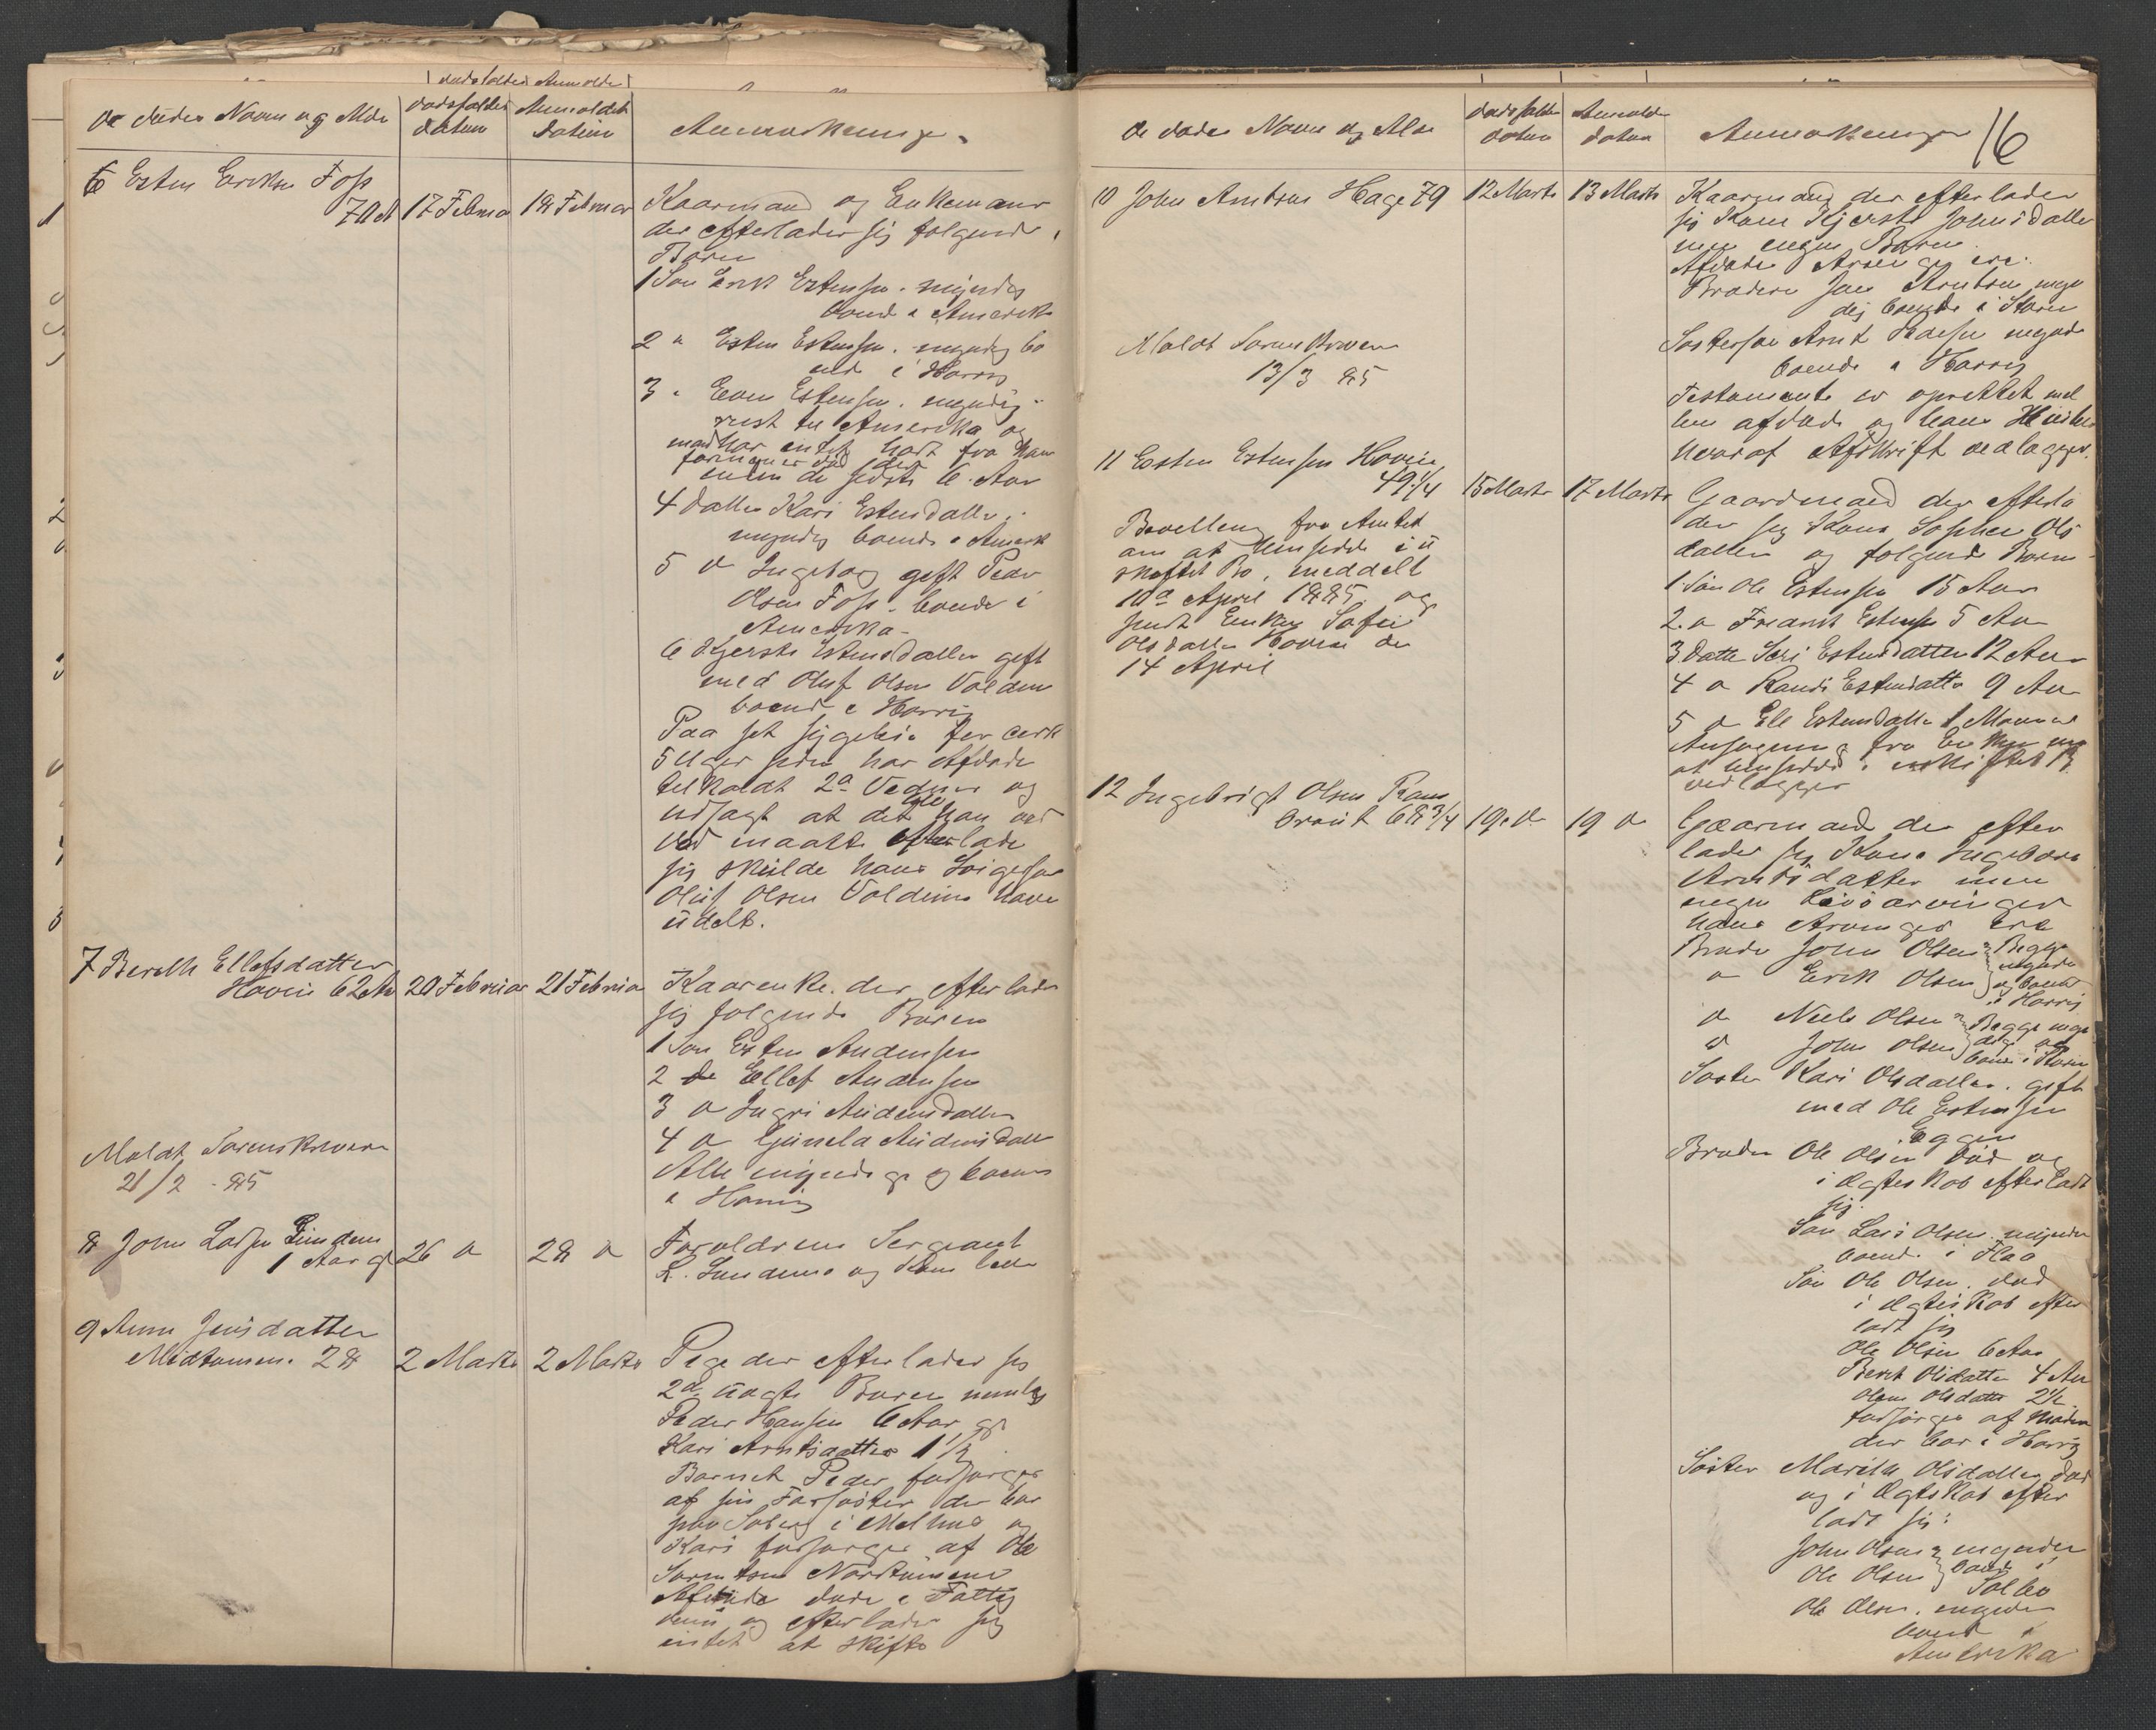 De dødes Navn og Alder
dødsfaldes datum
Anmeldels Datum
Anmerkninger
6 Esten Eriksen Foss
70 A
17 Februa
18 Februar
Kaarmand og Enkemand
der efterlader sig følgende
Børn
1 Søn Erik Estensen. myndig
boend i Amerika
2 " Esten Estensen. myndig bo
ende i Horrig
3 " Even Estensen. myndig
reist til Amerika og
man har intet hørt fra ham
formener død
inden de sidste 6 Aar
4 datter Kari Estensdatter
myndig boende i Amerik
5 d Ingebor gift Peder
Olsen Foss. boende i
Amerika
6 Kjersti Estensdatter gift
med Oluf Olsen Volden
boend i Horrig
Paa sit sygeleie for cirk
5 Uger siden har Afdøde
tilkaldt 2de Vidner og
udsagt at det han
ved maatte efterlade
sig skulde hans Svigersøn
Oluf Olsen Valdum have
udelt.
7 Bereth Ellefsdatter
Hovin 62 Aar
20 Februar
21 Februar
Kaarenke. der efterlader
sig følgende Børn
1 Søn Esten Andersen
2 do Ellef Andersen
3 d Ingri Andersdatter
4 d Gunela Andersdatter
Alle myndige og boende
i Horrig
Meldt Sorenskriveren
21/2 - 85
8 John Larsen Lundem
1 Aar gl
26 d
28 d
Forældrene Sergeant
L. Lundemo og Kone lever
9 Anne Jensdatter
Midttømme. 28
2 Marts
2 Marts
Pige der efterlader sig
2de uægte Børn nemlig
Peder Hansen 6 Aar gl
Kari Arntsdatter 1 1/2
Barnet Peder forsørges
af sin Farsøster der bor
paa Søberg i Melhus og
Kari forsørges af Ole
Sørentsen Nordtømme
Afdøde døde i Fattig
dom og efterlader sig
intet at skifte
De dødes Navn og Alder
dødsfaldes datum
Anmeldels datum
Anmerkninger
16
10 John Arntsen Hage 79
12 Marts
13 Marts
Kaarmand der efterlader
sig Kone Kjersti Johnsdatter
men ingen Børn.
Afdødes Arvinger ere
Brodren Jon Arntsen myn
dig boende i Støren
Søstersøn Arnt Pedersen myndig
boende i Horrig
Testamente er oprettet mel
lem afdøde og hans Hustru
hvoraf Afskrift vedlægges.
Meldt Sorenskriveren
13/3 85
11 Esten Estensen Hovin
49 1/4
15 Marts
17 Marts
Gaardmand der efterla
der sig Kone Sophie Ols
datter og følgende Børn
1 Søn Ole Estensen 15 Aar
2. d Fredrik Estensen 5 Aar
3 Datter Siri Estensdatter 12 Aar
4 d Randi Estensdatter 9 Aar
5 d Eli Estensdatter 1 Maaned
Ansøgning fra Enken om
at hensidde i uskiftet Bo
vedlægges
Bevilling fra Amtet
om at hensidde i u
skiftet Bo, meddelt
10de April 1885. og
sendt Enken Sofie
Olsdatter Hovin den
14 April
12 Ingebrigt Olsen Ram
68 3/4
19. d.
19 d
Gaarmand der efter
lader sig Kone Ingeborg
Arntsdatter men
ingen Livsarvinger
hans Arvinger ere
Broder John Olsen } Begge
d Erik Olsen } myndige og boend i Horrig
d Niels Olsen } Begge myn
d John Olsen } dige og boend i Støren
Søster Kari Olsdatter. gift
med Ole Estensen
Eggen
Broder Ole Olsen død og
i Ægteskab efterladt
sig.
Søn Lars Olsen myndig
boend. i Flaa
Søn Ole Olsen. død
i Ægteskab efter
ladt sig
Ole Olsen 6 Aar
Berit Olsdatter 4 Aar
Olsdatter 2 1/2
forsørges af Moderen
der bor i Horrig
Søster Marith Olsdatter død
og i Ægteskab efter
ladt sig:
John Olsen } myndige
Ole Olsen } boend i
Selbo
Ole Olsen. myndig
boend i
Amerika